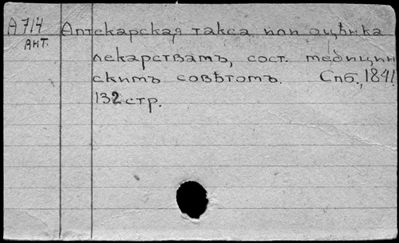 А 714 Аптекарская такса или оцѣнка
АНТ.
лекарствамъ, сост. медицин
скимъ совѣтомъ. Спб., 1841.
132 стр.